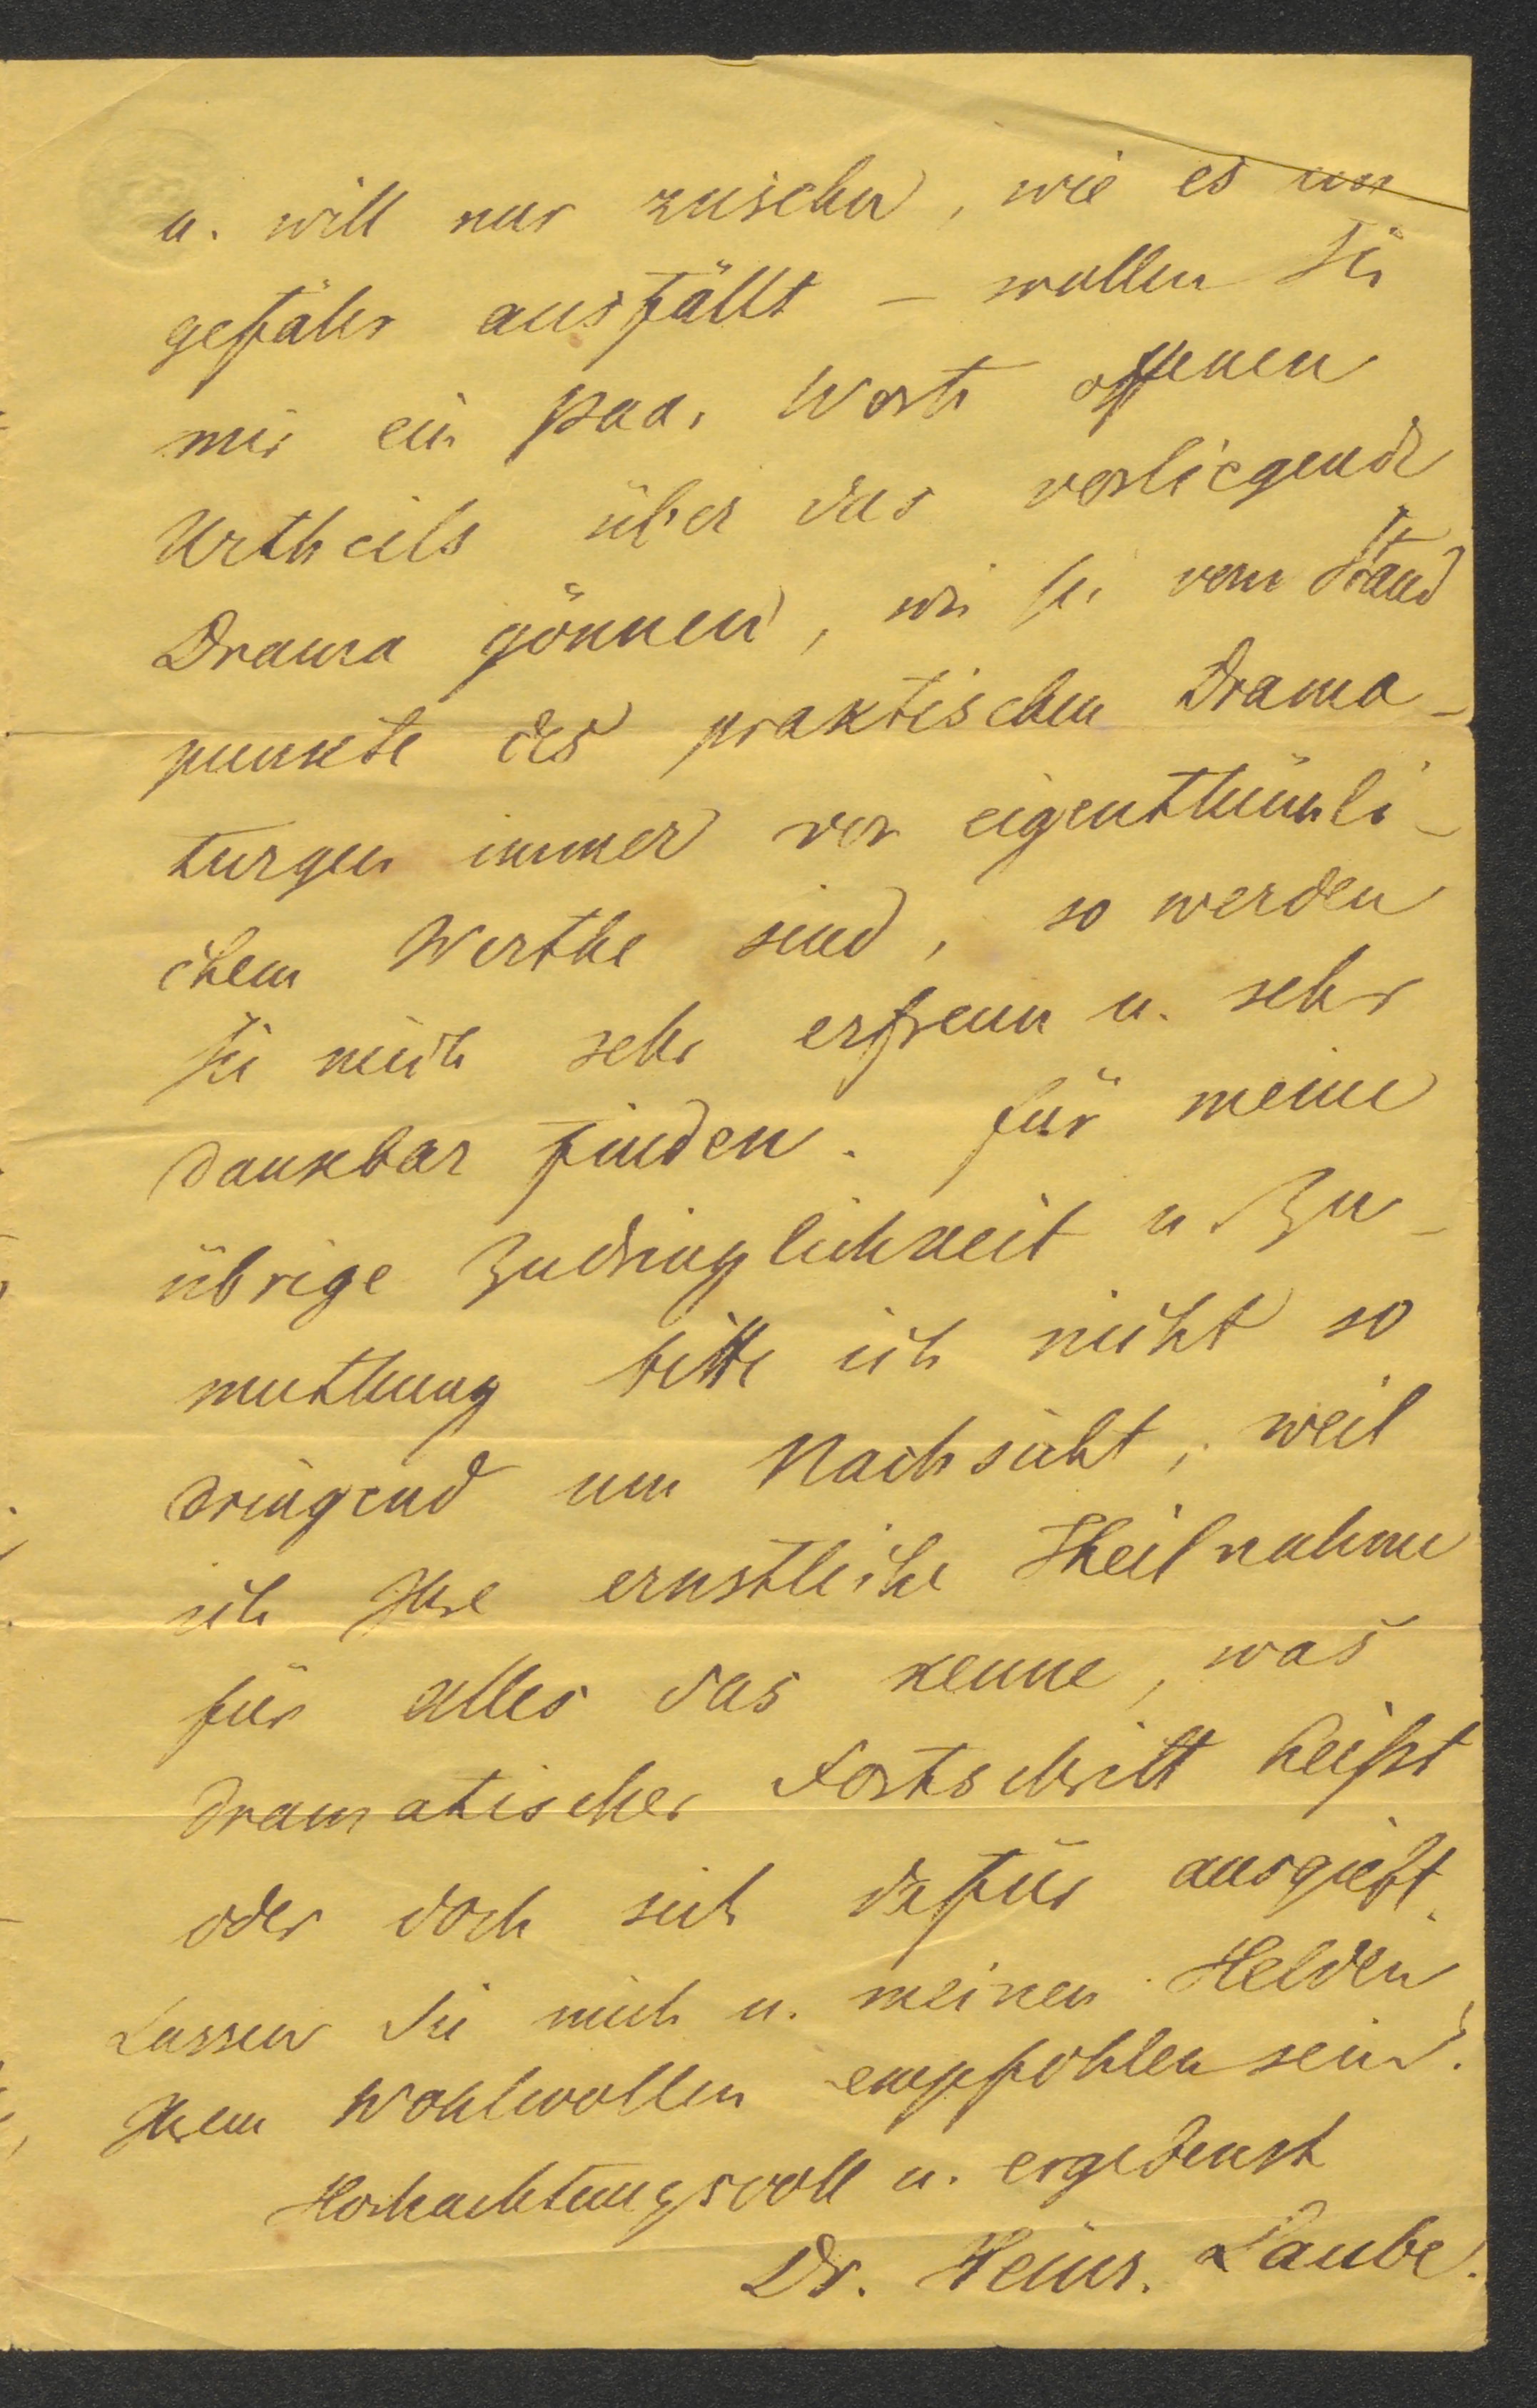 u. will nur zusehen, wie es un
gefähr ausfällt – wollen Sie
mir ein paar Worte offenen
Urtheils über das vorliegende
Drama gönnen, wie sie vom Stand
punkte des praktischen Drama-
turgen immer von eigenthümli-
chem Werthe sind, so werden
Sie mich sehr erfreun u. sehr
dankbar finden. Für meine
übrige Zudringlichkeit u. Zu-
muthung bitte ich nicht so
dringend um Nachsicht, weil
ich Ihre ernstliche Theilnahme
für alles das kenne, was
dramatischer Fortschritt heißt
oder doch sich dafür ausgiebt.
Lassen Sie mich u. meinen Helden
Ihrem Wohlwollen empfohlen sein.
Hochachtungsvoll u. ergebenst
Dr. Heinr. Laube.